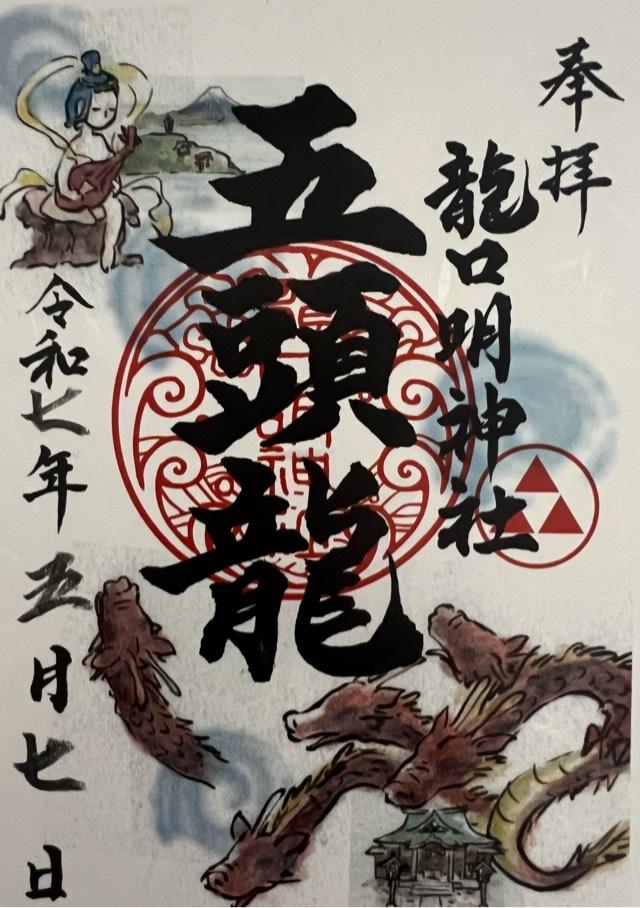 奉拝
龍口明神社
五頭龍
令和七年五月七日